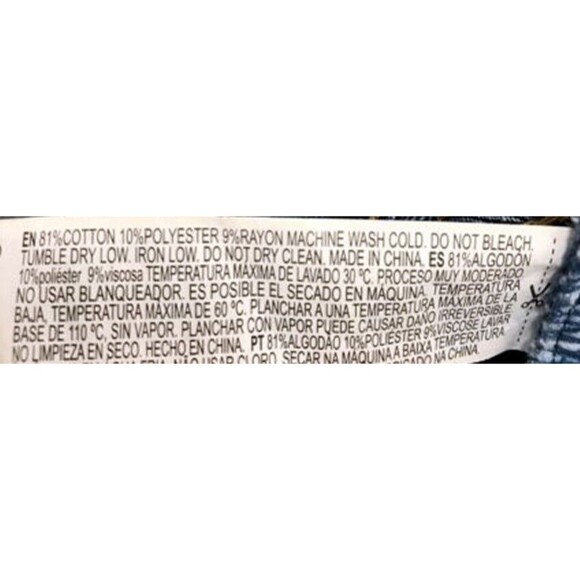 EN 81%COTTON 10%POLYESTER 9%RAYON MACHINE WASH COLD. DO NOT BLEACH.
TUMBLE DRY LOW. IRON LOW. DO NOT DRY CLEAN. MADE IN CHINA. ES 81%ALGODÓN
10%poliéster 9%viscosa TEMPERATURA MÁXIMA DE LAVADO 30 ºC. PROCESO MUY MODERADO
NO USAR BLANQUEADOR. ES POSIBLE EL SECADO EN MÁQUINA. TEMPERATURA
BAJA, TEMPERATURA MÁXIMA DE 60 ºC. PLANCHAR A UNA TEMPERATURA MÁXIMA DE LA
BASE DE 110 ºC, SIN VAPOR. PLANCHAR CON VAPOR PUEDE CAUSAR DAÑO IRREVERSIBLE.
NO LIMPIEZA EN SECO. HECHO EN CHINA. PT 81%ALGODÃO 10%POLIÉSTER 9%VISCOSE LAVAR
NÃO USAR CLORO. SECAR NA MÁQUINA A BAIXA TEMPERATURA.
NA CHINA.